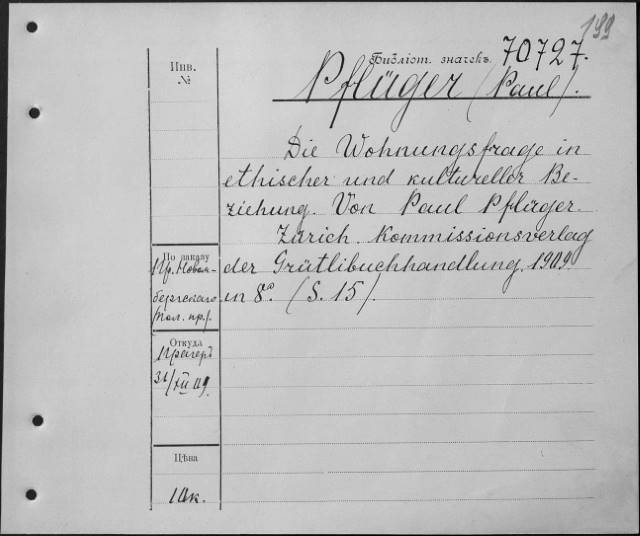 199
Библіот. значекъ 70727.
Инв.
№
Pflüger (Paul).
Die Wohnungsfrage in
ethischer und kultureller Be-
ziehung. Von Paul Pflüger.
Zürich. Kommissionsverlag
По заказу
der Grütlibuchhandlung. 1909.
Пр.
бергскаго
in 8°. (S. 15).
(пол. пр.).
Откуда
Прагеръ
31/XII 09.
Цѣна